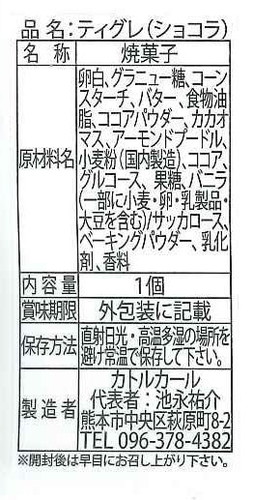 品 名：ティグレ（ショコラ）
名 称 焼菓子
原材料名 卵白、グラニュー糖、コーン
スターチ、バター、食物油
脂、ココアパウダー、カカオ
マス、アーモンドプードル、
小麦粉（国内製造）、ココア、
グルコース、果糖、バニラ
（一部に小麦・卵・乳製品・
大豆を含む）/サッカロース、
ベーキングパウダー、乳化
剤、香料
内 容 量 1個
賞味期限 外包装に記載
保存方法 直射日光・高温多湿の場所を
避け常温で保存して下さい。
製 造 者 カトルカール
代表者：池永祐介
熊本市中央区萩原町8-2
TEL 096-378-4382
※開封後は早目にお召し上がり下さい。